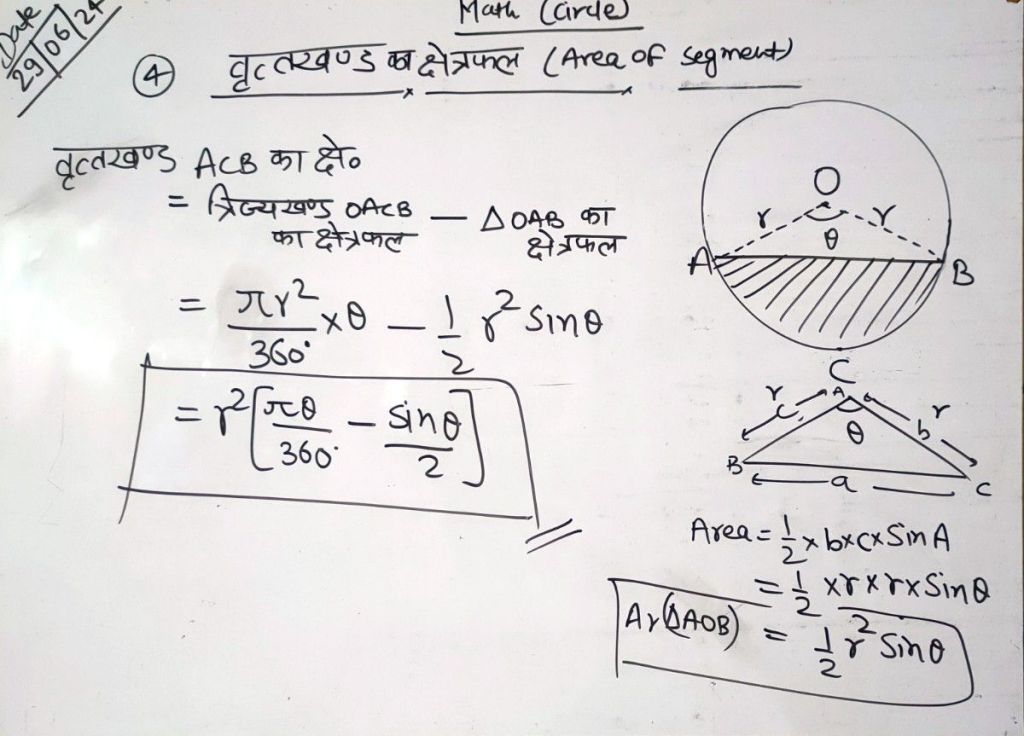 Date
29/06/24
Math (Circle)
④ वृत्तखण्ड का क्षेत्रफल (Area of segment)
वृत्तखण्ड ACB का क्षे०
= त्रिज्यखण्ड OACB का क्षेत्रफल — Δ OAB का क्षेत्रफल
= πr²/360° × θ — 1/2 r² sinθ
= r² [πθ/360° — sinθ/2]
O
r r
θ
A B
C
r A r
c θ b
B a C
Area = 1/2 × b×c× Sin A
= 1/2 × r × r × Sinθ
Ar(ΔAOB) = 1/2 r² Sinθ